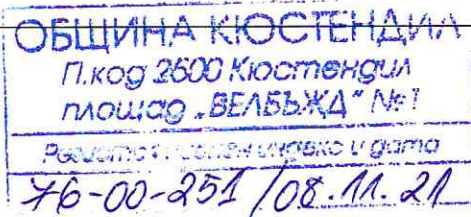 ОБЩИНА КЮСТЕНДИЛ
П.код 2500 Кюстендил
площад „ВЕЛБЪЖД“ №1
индекс и дата
76-00-251/08.11.21